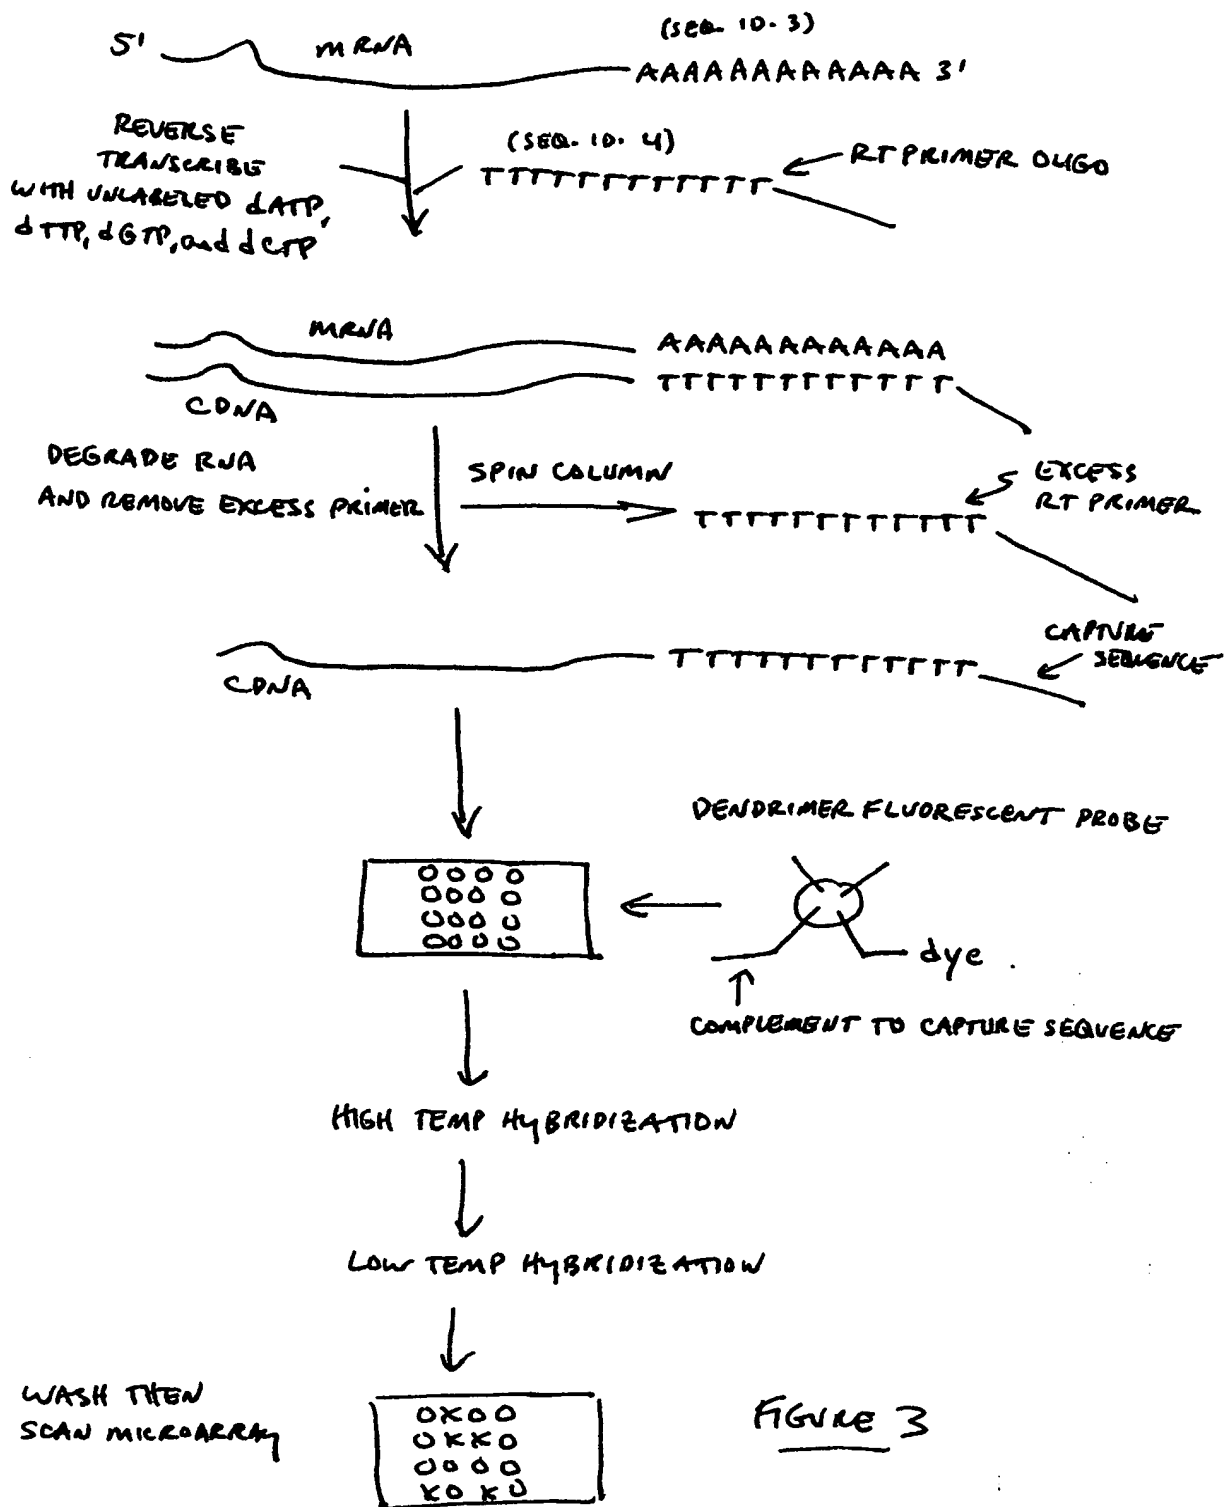 (SEQ. ID. 3)
5' mRNA AAAAAAAAAAAA 3'
REVERSE
TRANSCRIBE
WITH UNLABELED dATP,
dTTP, dGTP, and dCTP
(SEQ. ID. 4)
TTTTTTTTTTTT
RT PRIMER OLIGO
mRNA AAAAAAAAAAAA
TTTTTTTTTTTT
CDNA
DEGRADE RNA
AND REMOVE EXCESS PRIMER
SPIN COLUMN
TTTTTTTTTTTT
EXCESS
RT PRIMER
CAPTURE
SEQUENCE
TTTTTTTTTTTT
CDNA
DENDRIMER FLUORESCENT PROBE
OOOO
OOOO
OOOO
OOOO
dye
COMPLEMENT TO CAPTURE SEQUENCE
HIGH TEMP HYBRIDIZATION
LOW TEMP HYBRIDIZATION
WASH THEN
SCAN MICROARRAY
OXOO
OXXO
OOOO
XOXO
FIGURE 3